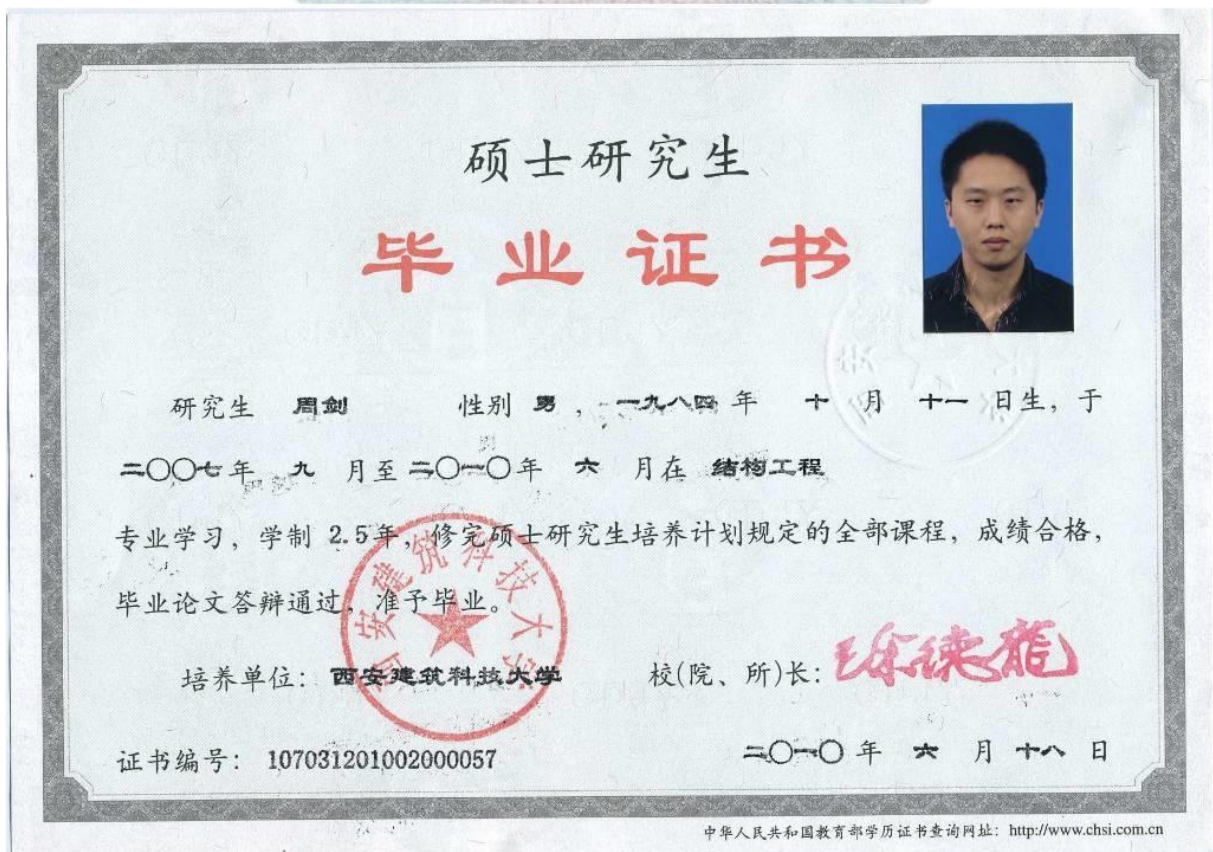 硕士研究生
毕业证书
研究生 周剑 性别 男 , 一九八四 年 十 月 十一 日生, 于
二〇〇七年 九 月至 二〇一〇年 六 月在 结构工程
专业学习, 学制 2.5年, 修完硕士研究生培养计划规定的全部课程, 成绩合格,
毕业论文答辩通过, 准予毕业。
西安建筑科技大学
培养单位: 西安建筑科技大学 校(院、所)长: 徐德龙
证书编号: 107031201002000057 二〇一〇 年 六 月 十八 日
中华人民共和国教育部学历证书查询网址: http://www.chsi.com.cn